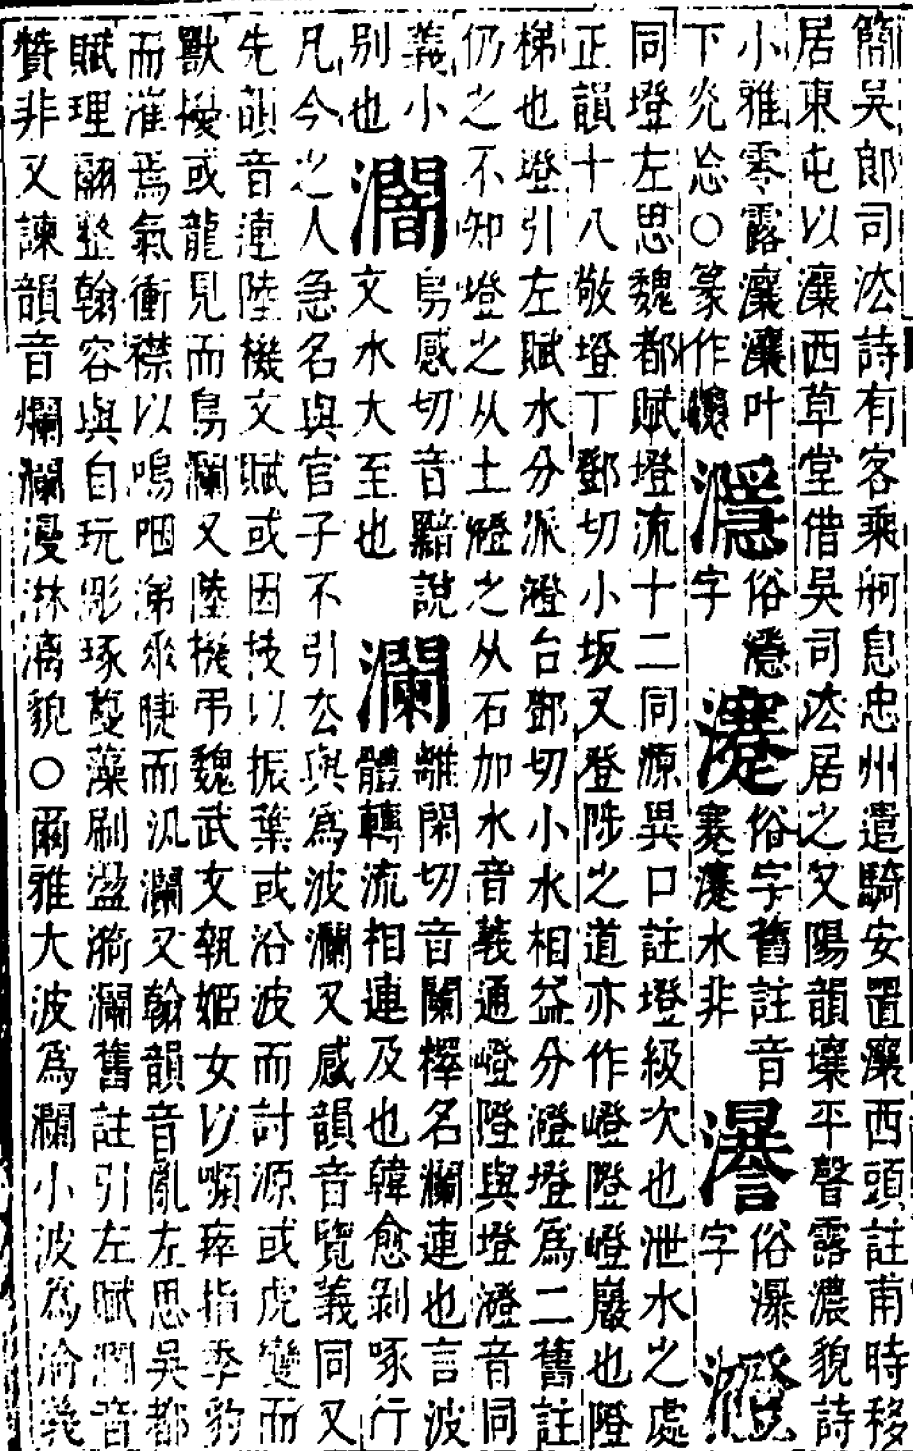 簡吳郎司法詩有客乘舸自忠州遣騎安置瀼西頭註甫時移
居東屯以瀼西草堂借吳司法居之又陽韻壤平聲露濃貌詩
小雅零露瀼瀼叶
下光○篆作
㶏
俗濦
字
瀽
俗字舊註音
蹇瀽水非
俗瀑
字
同墱左思魏都賦墱流十二同源異口註墱級次也泄水之處
正韻十八敬墱丁鄧切小坂又登陟之道亦作嶝隥嶝巖也隥
梯也墱引左賦水分派澄台鄧切小水相益分澄墱爲二舊註
仍之不知墱之从土磴之从石加水音義通嶝隥與墱澄音同
義小
別也
濶
烏感切音黯說
文水大至也
瀾
離閑切音闌檡名瀾連也言波
體轉流相連及也韓愈剝啄行
凡今之人急名與官子不引去與爲波瀾又感韻音覽義同又
先韻音漣陸機文賦或因枝以振葉或沿波而討源或虎變而
獸擾或龍見而鳥瀾又陸機弔魏武文執姬女以嚬瘁指季豹
而漼焉氣衝襟以嗚咽涕垂睫而汍瀾又翰韻音亂左思吳都
賦理翮整翰容與自玩彫琢蔓藻刷盪漪瀾舊註引左賦瀾音
贊非又諫韻音爛瀾漫淋漓貌○爾雅大波爲瀾小波爲淪義